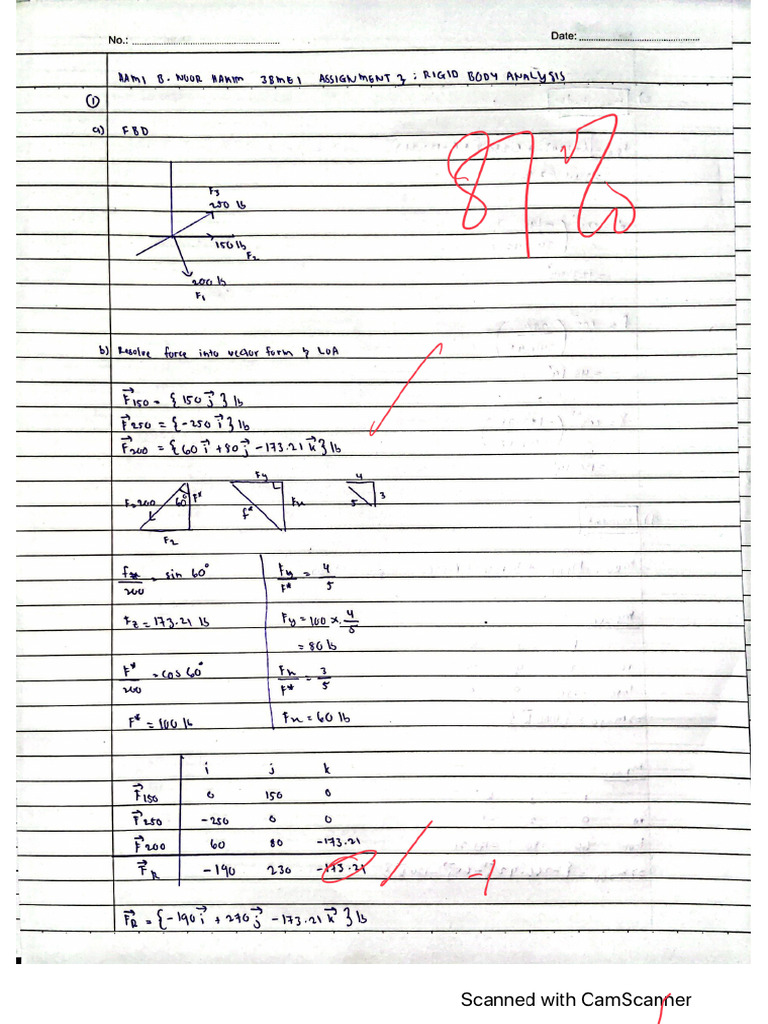 No.: ........................
Date: ........................
HAMI B. NOOR HAKIM 3BME1 ASSIGNMENT 3 : RIGID BODY ANALYSIS
①
a) FBD
87%
F3
250 lb
150 lb
F2
200 lb
F1
b) Resolve force into vector form & LOA
F⃗150 = { 150 j⃗ } lb
F⃗250 = {-250 i⃗ } lb
F⃗200 = { 60 i⃗ + 80 j⃗ - 173.21 k⃗ } lb
F=200 60° F*
Fz
Fy
F* Fx
4
5 3
Fz/200 = sin 60° Fy/F* = 4/5
Fz = 173.21 lb Fy = 100 x 4/5
= 80 lb
F*/200 = cos 60° Fx/F* = 3/5
F* = 100 lb Fx = 60 lb
i j k
F⃗150 0 150 0
F⃗250 -250 0 0
F⃗200 60 80 -173.21
F⃗R -190 230 -173.21 -1
F⃗R = {-190 i⃗ + 270 j⃗ - 173.21 k⃗ } lb
Scanned with CamScanner